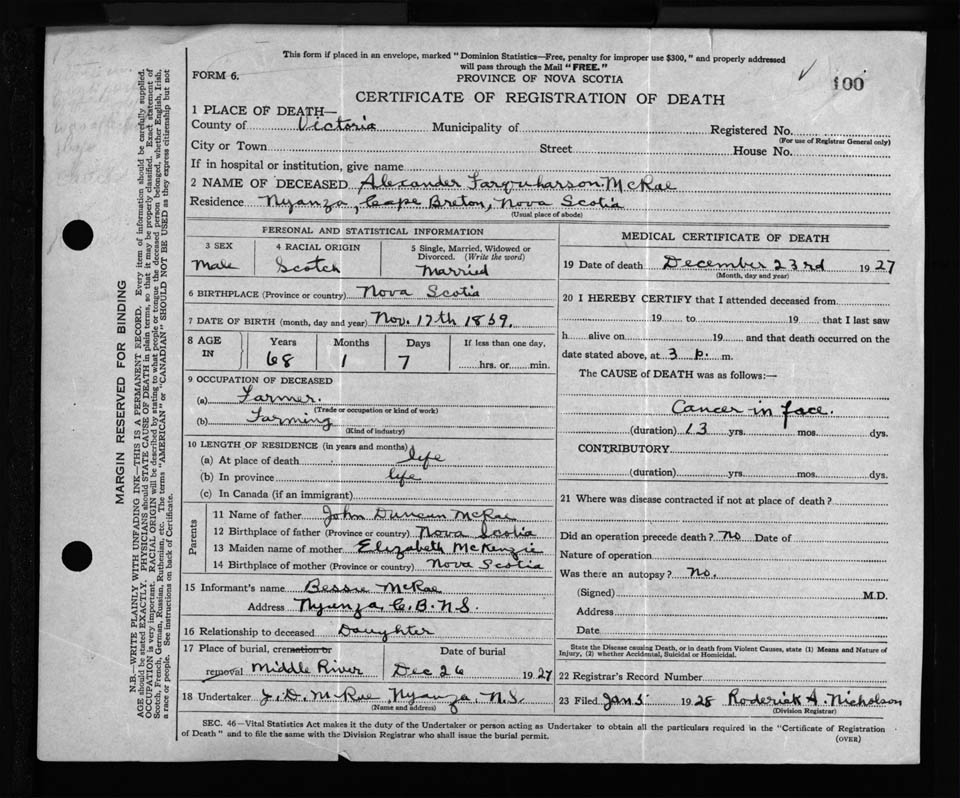 This form if placed in an envelope, marked "Dominion Statistics—Free, penalty for improper use $300," and properly addressed
will pass through the Mail "FREE."
FORM 6.
PROVINCE OF NOVA SCOTIA
✓
100
CERTIFICATE OF REGISTRATION OF DEATH
1 PLACE OF DEATH—
County of Victoria Municipality of Registered No.
(For use of Registrar General only)
City or Town Street House No.
If in hospital or institution, give name
2 NAME OF DECEASED Alexander Farquharson McRae
Residence Nyanza, Cape Breton, Nova Scotia
(Usual place of abode)
PERSONAL AND STATISTICAL INFORMATION
3 SEX 4 RACIAL ORIGIN 5 Single, Married, Widowed or
Divorced. (Write the word)
Male Scotch Married
6 BIRTHPLACE (Province or country) Nova Scotia
7 DATE OF BIRTH (month, day and year) Nov. 17th 1859.
8 AGE Years Months Days If less than one day,
IN 68 1 7 hrs. or min.
9 OCCUPATION OF DECEASED
(a) Farmer.
(Trade or occupation or kind of work)
(b) Farming
(Kind of industry)
10 LENGTH OF RESIDENCE (in years and months)
(a) At place of death life
(b) In province life
(c) In Canada (if an immigrant)
Parents
11 Name of father John Duncan McRae
12 Birthplace of father (Province or country) Nova Scotia
13 Maiden name of mother Elizabeth McKenzie
14 Birthplace of mother (Province or country) Nova Scotia
15 Informant's name Bessie McRae
Address Nyanza, C.B. N.S.
16 Relationship to deceased Daughter
17 Place of burial, cremation or Date of burial
removal Middle River Dec 26 1927
18 Undertaker J. D. McRae, Nyanza, N.S.
(Name and address)
MEDICAL CERTIFICATE OF DEATH
19 Date of death December 23rd 1927
(Month, day and year)
20 I HEREBY CERTIFY that I attended deceased from
19 to 19 that I last saw
h alive on 19 and that death occurred on the
date stated above, at 3 p. m.
The CAUSE of DEATH was as follows:—
Cancer in face.
(duration) 13 yrs. mos. dys.
CONTRIBUTORY
(duration) yrs. mos. dys.
21 Where was disease contracted if not at place of death?
Did an operation precede death? No Date of
Nature of operation
Was there an autopsy? No.
(Signed) M.D.
Address
Date
State the Disease causing Death, or in death from Violent Causes, state (1) Means and Nature of
Injury, (2) whether Accidental, Suicidal or Homicidal.
22 Registrar's Record Number
23 Filed Jan 5 1928 Roderick A. Nicholson
(Division Registrar)
SEC. 46—Vital Statistics Act makes it the duty of the Undertaker or person acting as Undertaker to obtain all the particulars required in the "Certificate of Registration
of Death" and to file the same with the Division Registrar who shall issue the burial permit.
(OVER)
MARGIN RESERVED FOR BINDING
N.B.—WRITE PLAINLY WITH UNFADING INK—THIS IS A PERMANENT RECORD. Every item of information should be carefully supplied.
AGE should be stated EXACTLY. PHYSICIANS should STATE CAUSE OF DEATH in plain terms, so that it may be properly classified. Exact statement of
OCCUPATION is very important. RACIAL ORIGIN will be described by stating to what people or tongue the deceased person belonged, whether English, Irish,
Scotch, French, German, Russian, Ruthenian, etc. The terms "AMERICAN" or "CANADIAN" SHOULD NOT BE USED as they express citizenship but not
a race or people. See instructions on back of Certificate.